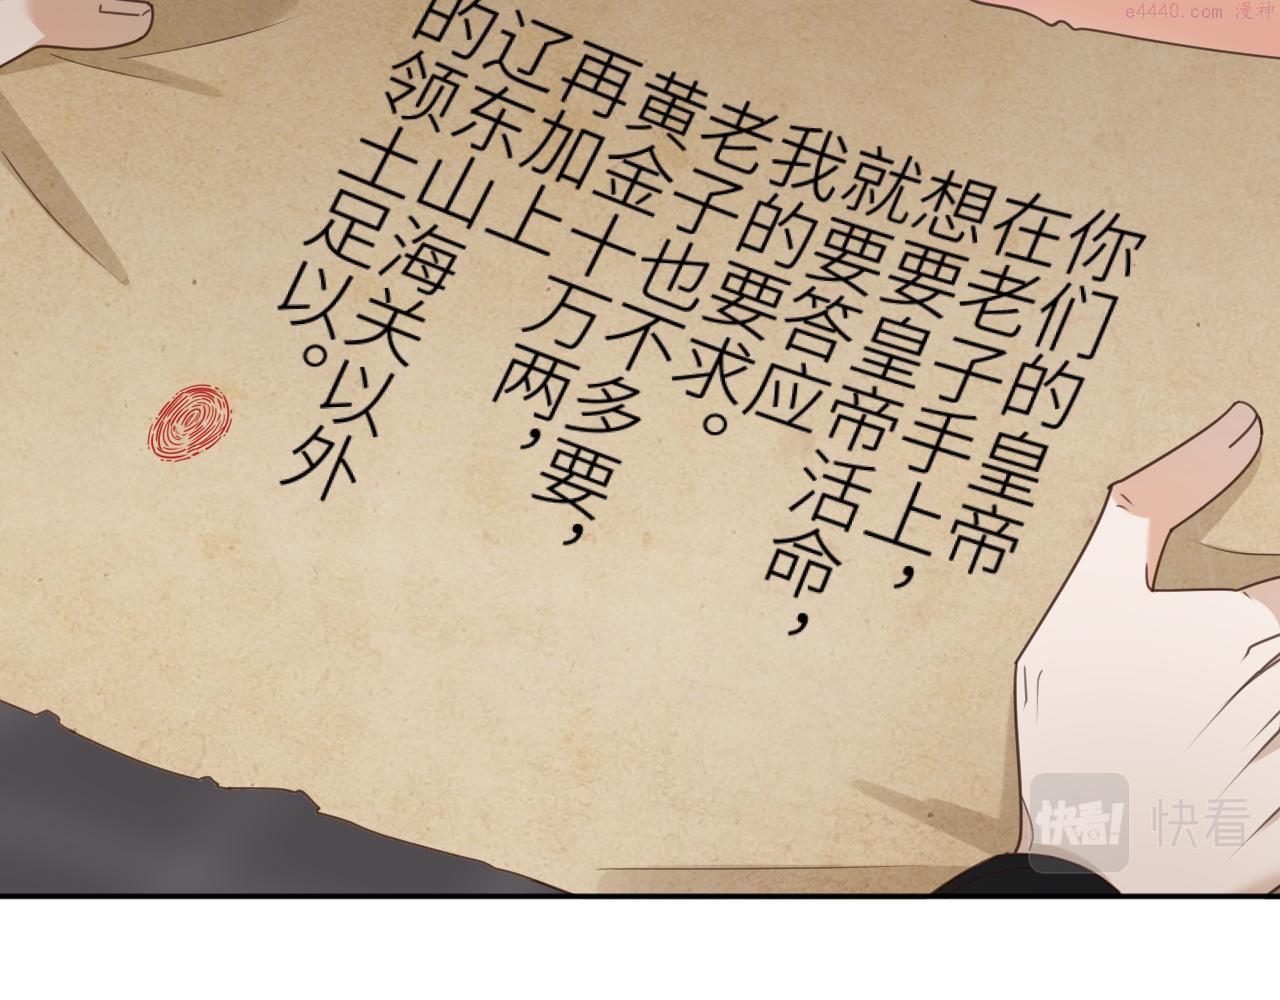 你们的皇帝
在老子手上，
想要皇帝活命，
就要答应
我的要求。
老子也不多要，
黄金十万两，
再加上
辽东山海关以外
的领土足以。
e4440.com 漫神
快看!
快看